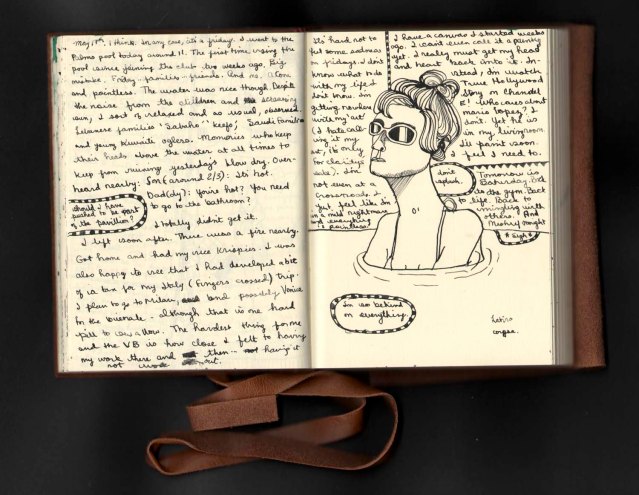 May 18th, I think. In any case, it's a friday. I went to the
Palms pool today around 11. The first time using the
pool since joining the club two weeks ago. Big
mistake. Friday = families = friends. And me. Alone
and paintless. The water was nice though. Despite
the noise from the children and screaming
sun, I sort of relaxed and as usual, observed.
Lebanese families 'Sabaho' 'keefo', Saudi families
and young Kuwaiti oglers. Mamories who keep
their heads above the water at all times to
keep from ruining yesterday's blow dry. Over-
heard nearby: Son (around 2/3): It's hot.
Dad(dy): You're hot? You need
to go to the bathroom?
should I have
pushed to be part
of the pavilion?
I totally didn't get it.
I left soon after. There was a fire nearby.
Got home and had my rice Krispies. I was
also happy to see that I had developed a bit
of a tan for my Italy (fingers crossed) trip.
I plan to go to Milan, and possibly Venice
for the biennale - although that is one hard
pill to swallow. The hardest thing for me
and the VB is how close I felt to having
my work there and then - not having it
not there
It's hard not to
feel some sadness
on fridays. I don't
know what to do
with my life. I
don't know. I'm
getting nowhere
with my 'art'
(I hate calling
it my
art, it's only
for clarity's
sake). I'm
not even at a
crossroads. I
just feel like I'm
in a mild nightmare
and everything
is paintless
I have a canvas I started weeks
ago. I can't even call it a painting
yet. I really must get my head
and heart back into it. In-
stead, I'm watching
True Hollywood
Story on Channel
E! who cares about
mario lopez? I
don't. Yet he is
in my living room.
I'll paint soon.
I feel I need to.
don't
splash.
Tomorrow is
Saturday. Back
to the gym. Back
to life. Back to
mingling with
others. And
* sigh *
I'm so behind
on everything.